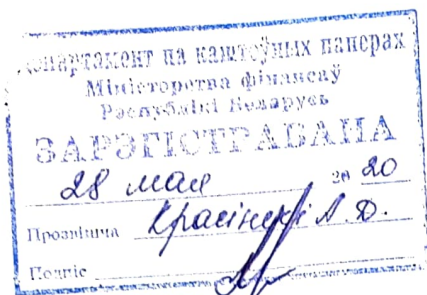 Дэпартамент па каштоўных паперах
Міністэрства фінансаў
Рэспублікі Беларусь
ЗАРЭГІСТРАВАНА
28 мая 2020
Прозвішча Красінскі А.Ф.
Подпіс